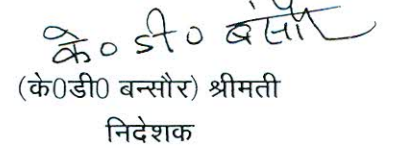 के० डी० बंसौर
(के0डी0 बन्सौर) श्रीमती
निदेशक